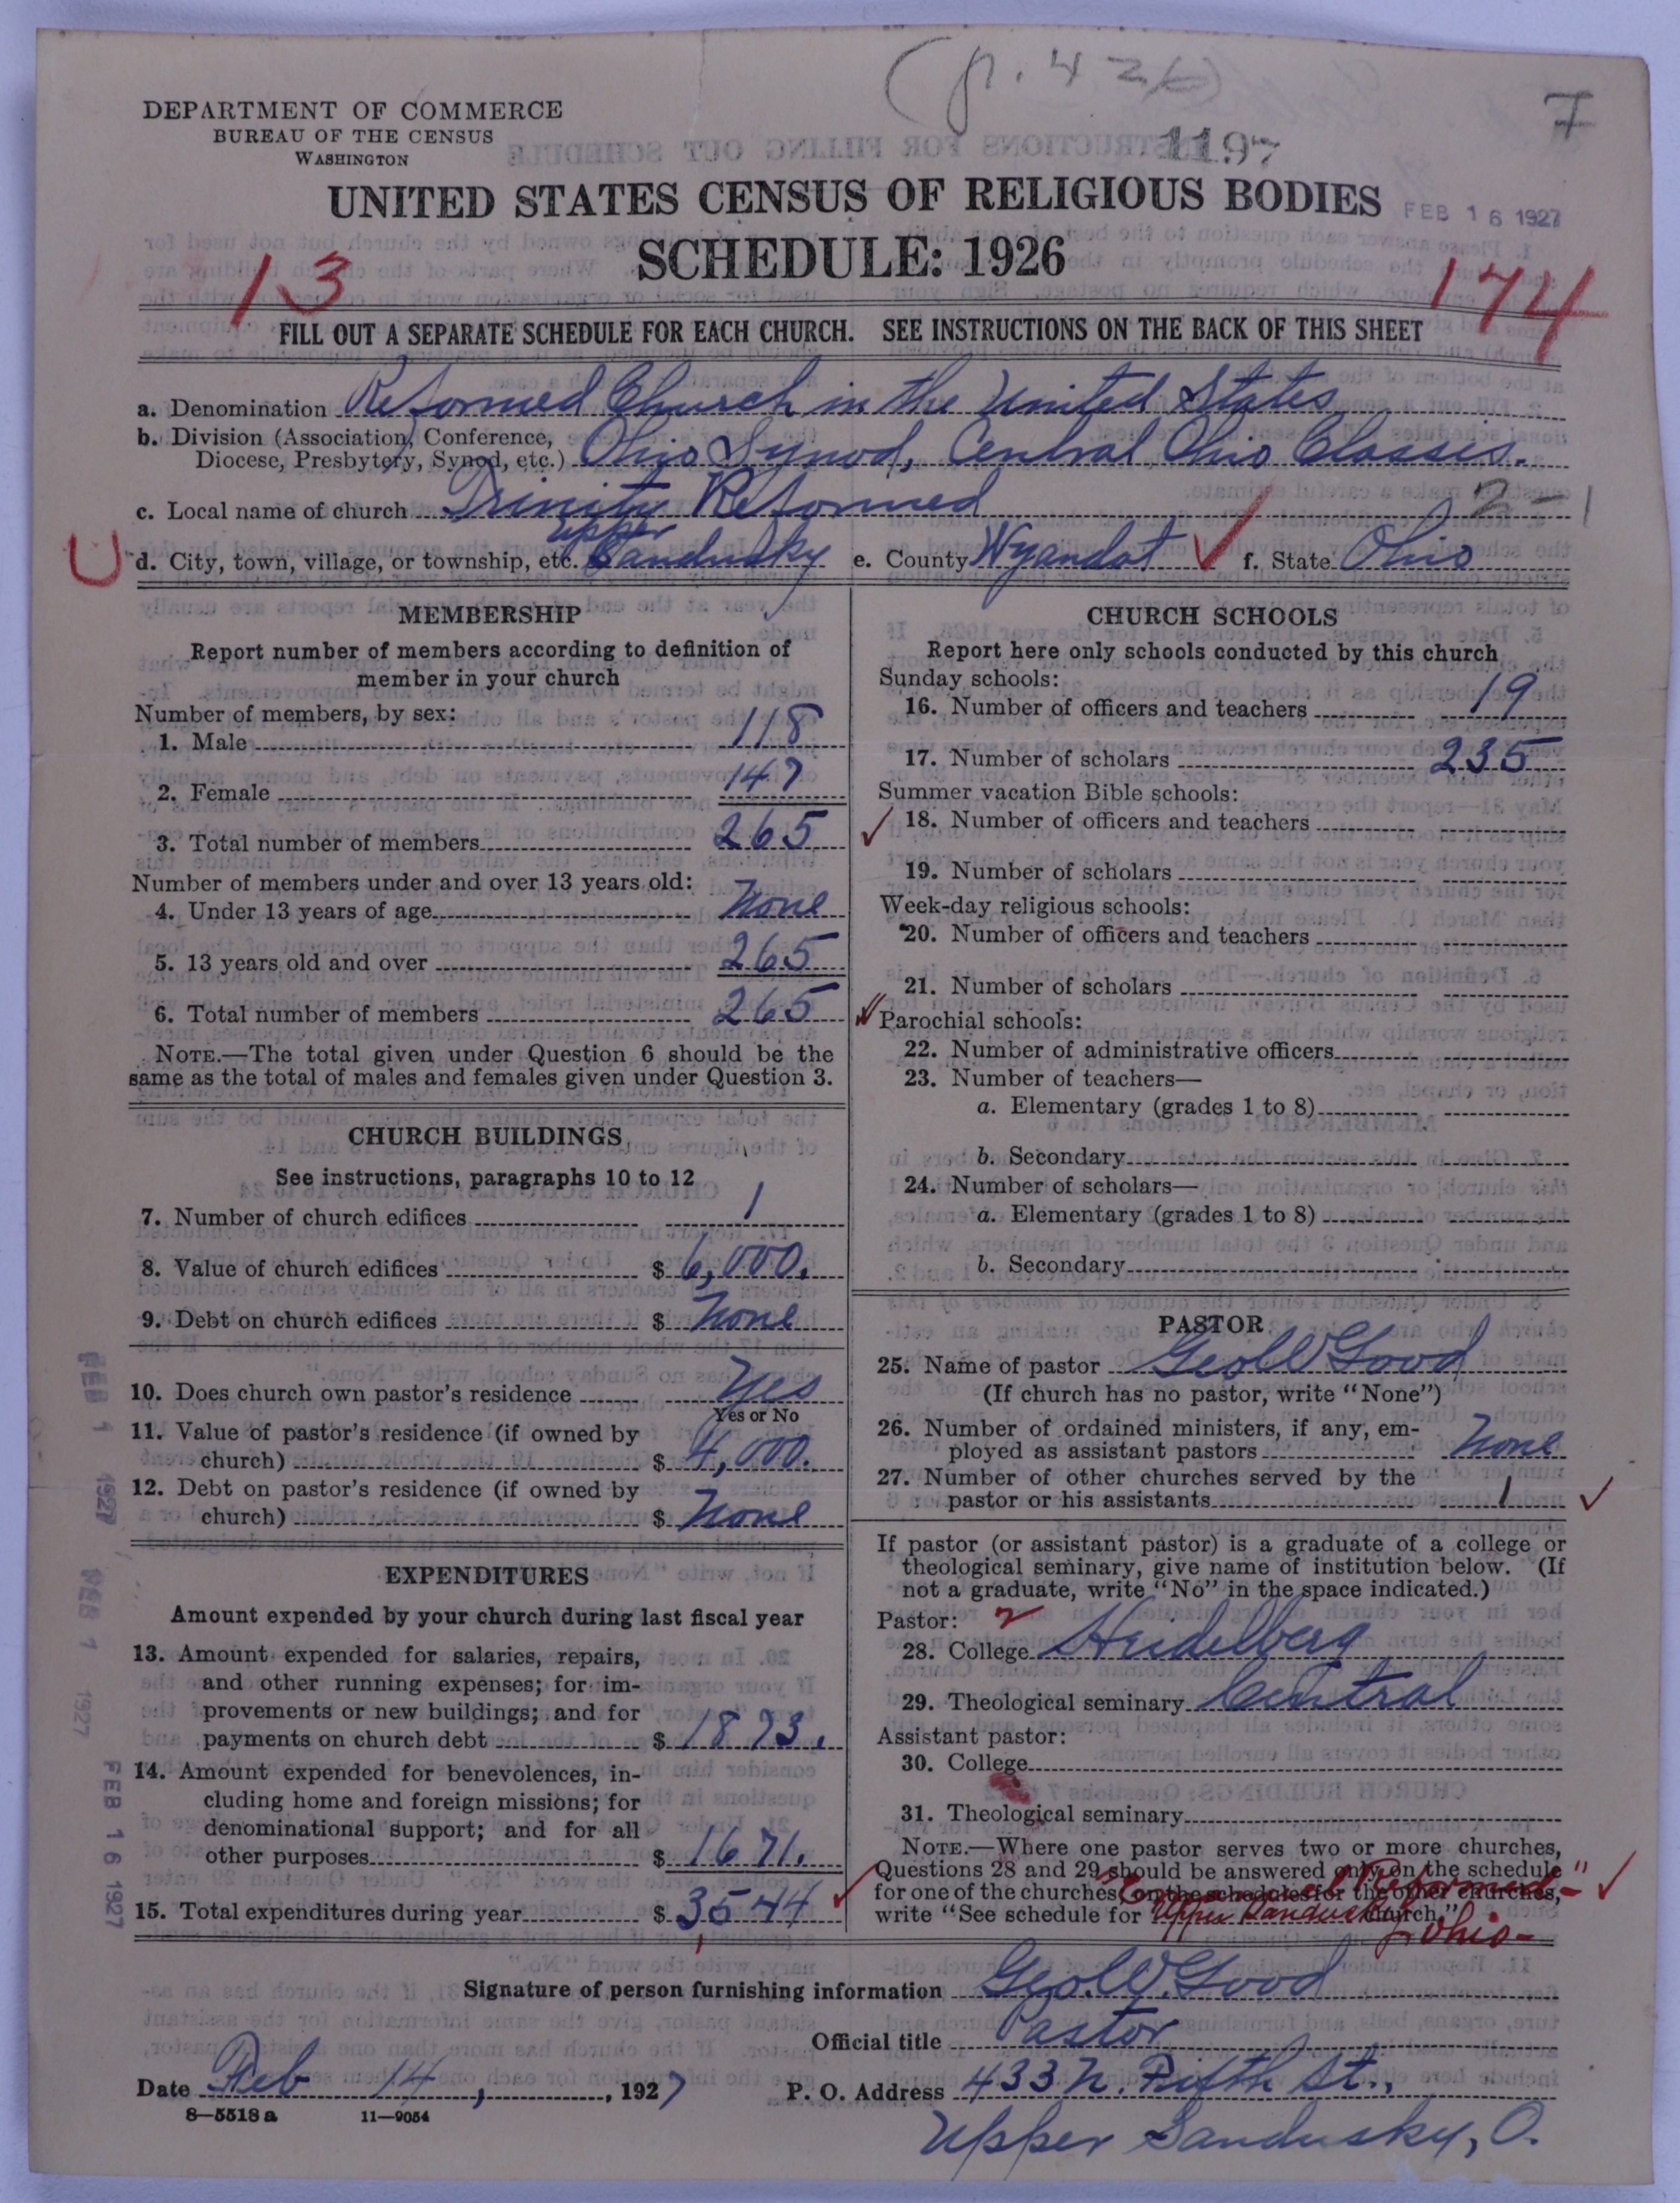 (p. 426)
7
DEPARTMENT OF COMMERCE
BUREAU OF THE CENSUS
WASHINGTON
1197
UNITED STATES CENSUS OF RELIGIOUS BODIES
FEB 16 1927
SCHEDULE: 1926
13
174
FILL OUT A SEPARATE SCHEDULE FOR EACH CHURCH. SEE INSTRUCTIONS ON THE BACK OF THIS SHEET
a. Denomination Reformed Church in the United States
b. Division (Association, Conference,
Diocese, Presbytery, Synod, etc.) Ohio Synod, Central Ohio Classis.
c. Local name of church Trinity Reformed 2-1
U d. City, town, village, or township, etc. Upper Sandusky e. County Wyandot f. State Ohio
MEMBERSHIP
Report number of members according to definition of
member in your church
Number of members, by sex:
1. Male 118
2. Female 147
3. Total number of members 265
Number of members under and over 13 years old:
4. Under 13 years of age None
5. 13 years old and over 265
6. Total number of members 265
NOTE.—The total given under Question 6 should be the
same as the total of males and females given under Question 3.
CHURCH BUILDINGS
See instructions, paragraphs 10 to 12
7. Number of church edifices 1
8. Value of church edifices $ 6,000.
9. Debt on church edifices $ None
10. Does church own pastor's residence Yes
Yes or No
11. Value of pastor's residence (if owned by
church) $ 4,000.
12. Debt on pastor's residence (if owned by
church) $ None
EXPENDITURES
Amount expended by your church during last fiscal year
13. Amount expended for salaries, repairs,
and other running expenses; for im-
provements or new buildings; and for
payments on church debt $ 1873.
14. Amount expended for benevolences, in-
cluding home and foreign missions; for
denominational support; and for all
other purposes $ 1671.
15. Total expenditures during year $ 3544
CHURCH SCHOOLS
Report here only schools conducted by this church
Sunday schools:
16. Number of officers and teachers 19
17. Number of scholars 235
Summer vacation Bible schools:
18. Number of officers and teachers
19. Number of scholars
Week-day religious schools:
20. Number of officers and teachers
21. Number of scholars
Parochial schools:
22. Number of administrative officers
23. Number of teachers—
a. Elementary (grades 1 to 8)
b. Secondary
24. Number of scholars—
a. Elementary (grades 1 to 8)
b. Secondary
PASTOR
25. Name of pastor Geo W Good
(If church has no pastor, write "None")
26. Number of ordained ministers, if any, em-
ployed as assistant pastors None
27. Number of other churches served by the
pastor or his assistants 1
If pastor (or assistant pastor) is a graduate of a college or
theological seminary, give name of institution below. (If
not a graduate, write "No" in the space indicated.)
Pastor: 2
28. College Heidelberg
29. Theological seminary Central
Assistant pastor:
30. College
31. Theological seminary
NOTE.—Where one pastor serves two or more churches,
Questions 28 and 29 should be answered only on the schedule
for one of the churches; on the schedules for the other churches,
write "See schedule for church."
Reformed-"
Upper Sandusky
Ohio-
Signature of person furnishing information Geo. W. Good
Official title Pastor
Date Feb 14, 1927 P. O. Address 433 N. Fifth St.,
8—5518 a 11—9054
Upper Sandusky, O.
FEB 1 1927
FEB 1 1927
FEB 16 1927